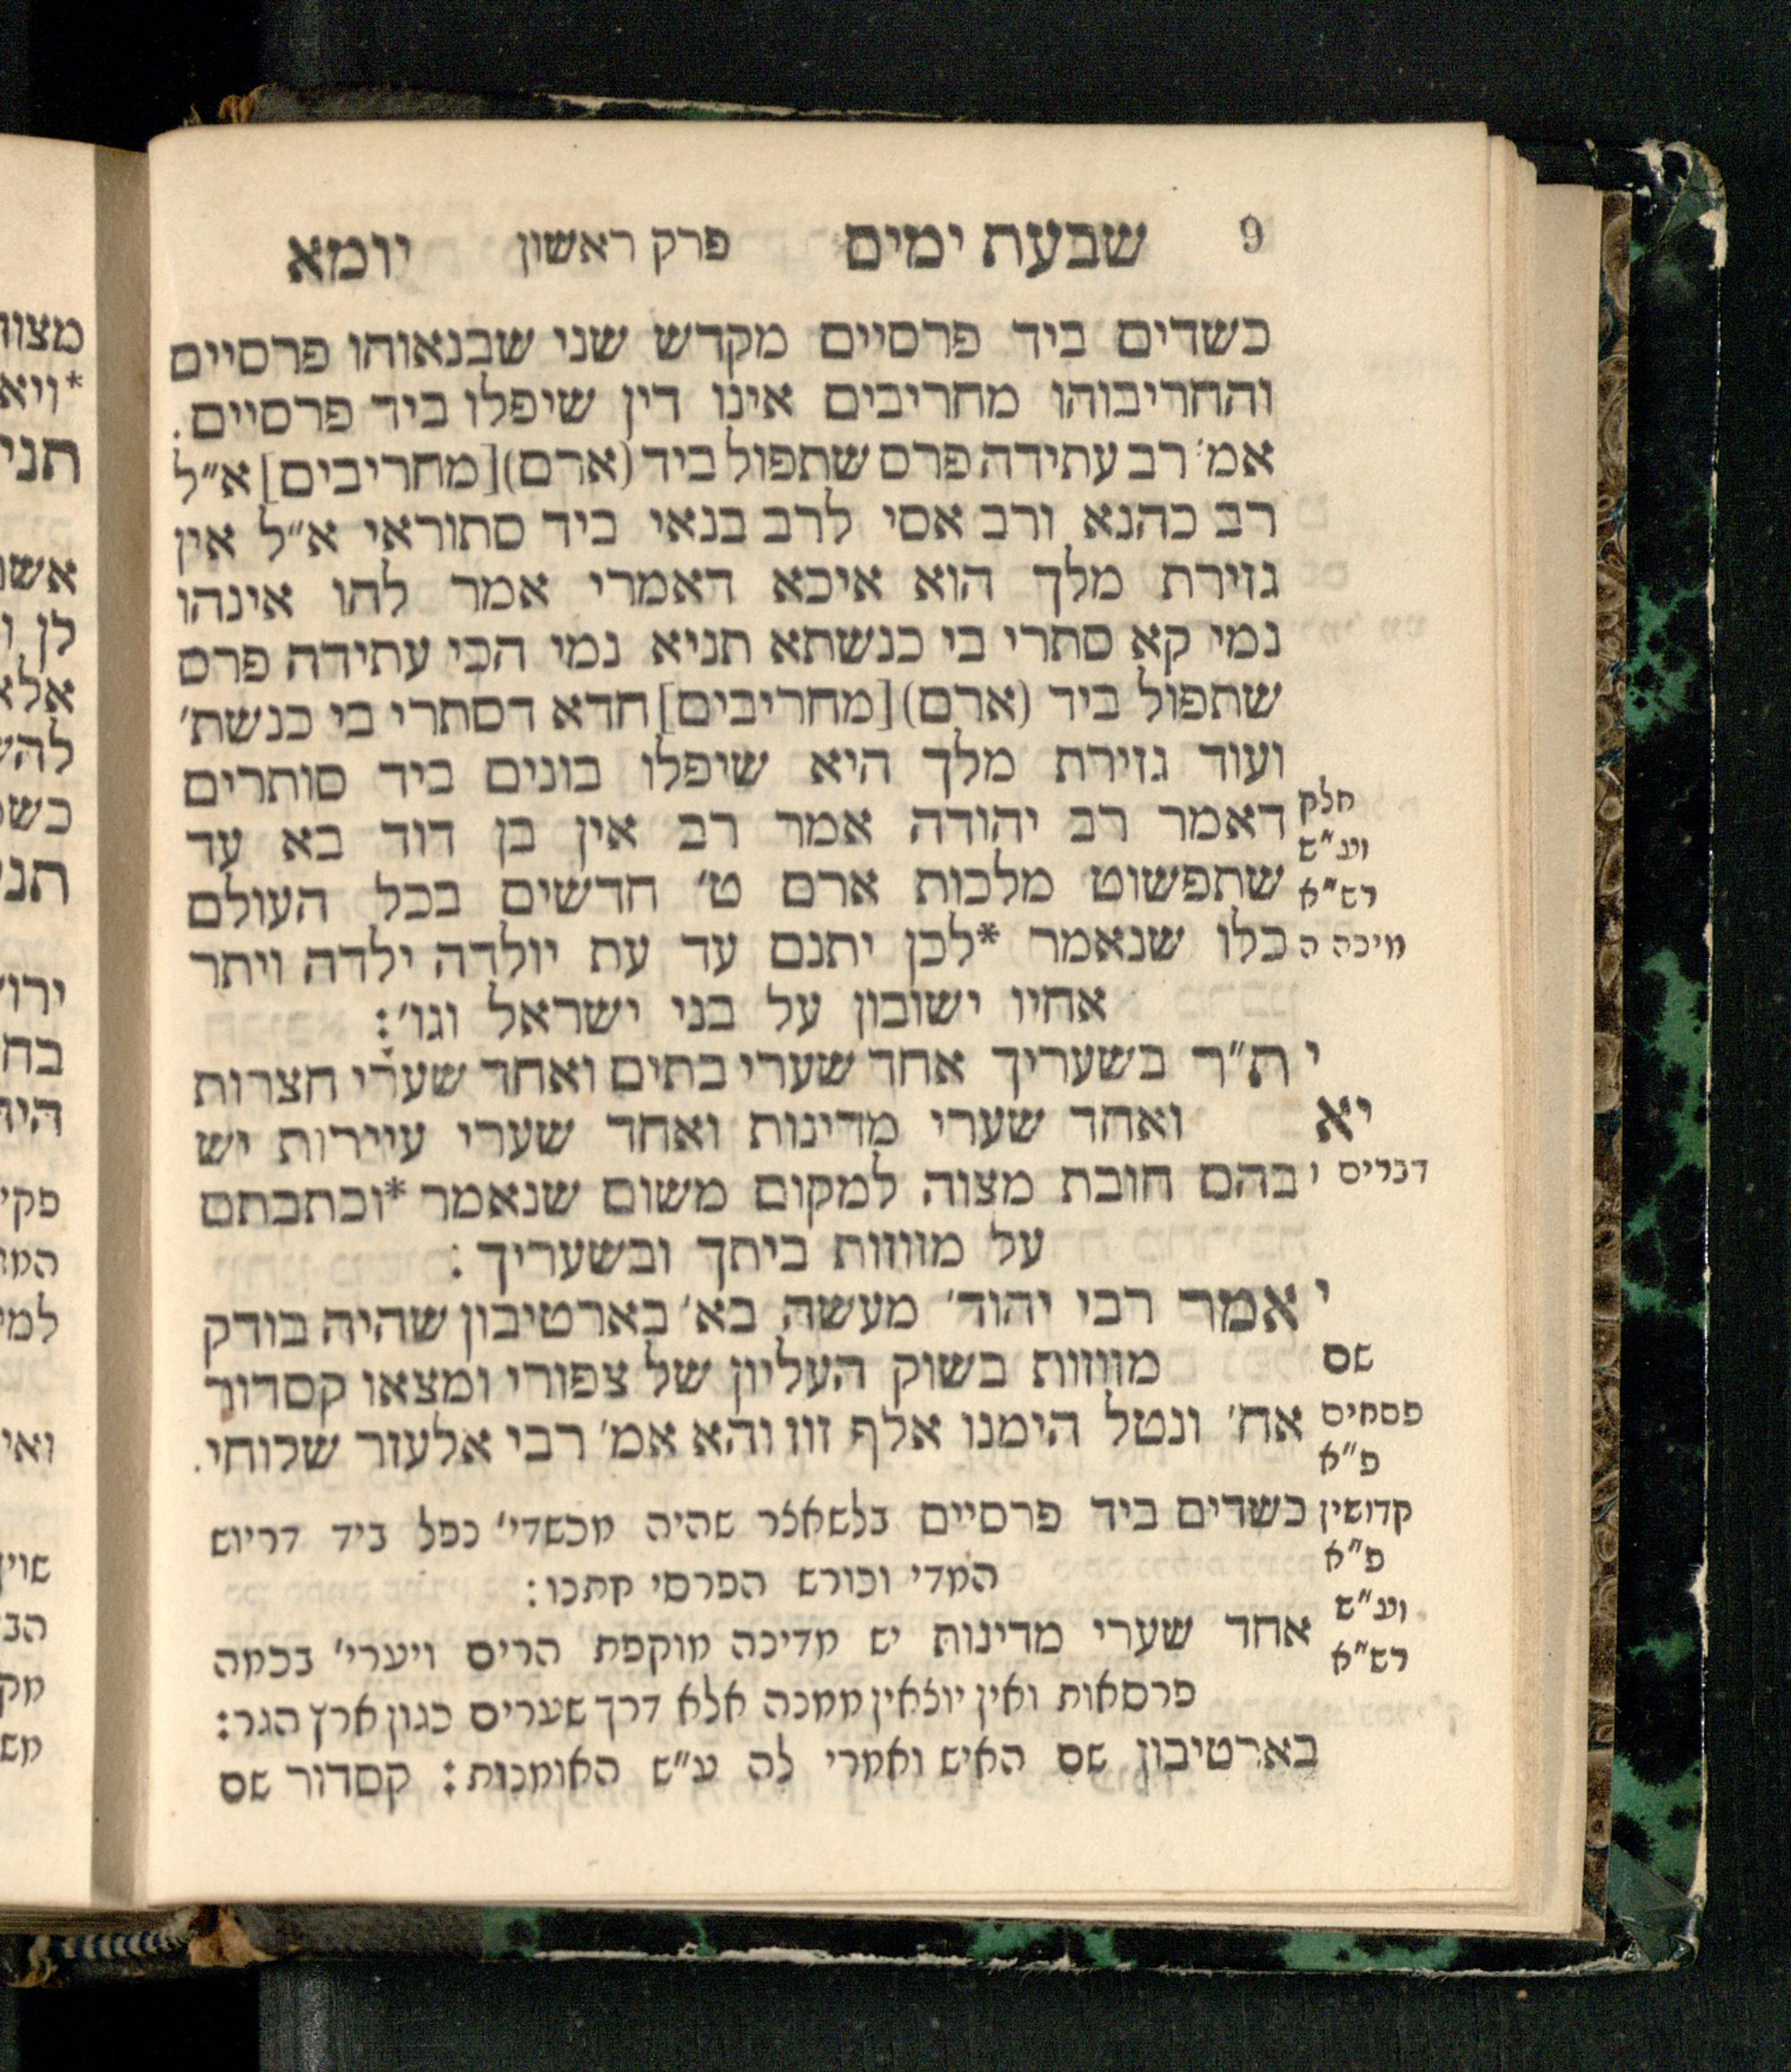 9 שבעת ימים פרק ראשון יומא
כשדים ביד פרסיים מקדש שני שבנאוהו פרסיים
והחריבוהו מחריבים אינו דין שיפלו ביד פרסיים.
אמ׳ רב עתידה פרס שתפול ביד (ארם) [מחריבים] א״ל
רב כהנא ורב אסי לרב בנאי ביד סתוראי א״ל אין
גזירת מלך הוא איכא דאמרי אמר להו אינהו
נמי קא סתרי בי כנשתא תניא נמי הכי עתידה פרס
שתפול ביד (ארם) [מחריבים] חדא דסתרי בי כנשת׳
ועוד גזירת מלך היא שיפלו בונים ביד סותרים
חלק
דאמר רב יהודה אמר רב אין בן דוד בא עד
וע״ש
רש״א
שתפשוט מלכות ארם ט׳ חדשים בכל העולם
מיכה ה
כלו שנאמר *לכן יתנם עד עת יולדה ילדה ויתר
אחיו ישובון על בני ישראל וגו׳:
י ת״ר בשעריך אחד שערי בתים ואחד שערי חצרות
יא
ואחד שערי מדינות ואחד שערי עיירות יש
דברים ו
בהם חובת מצוה למקום משום שנאמר *וכתבתם
על מזוזות ביתך ובשעריך:
י אמר רבי יהוד׳ מעשה בא׳ בארטיבון שהיה בודק
שם
מזוזות בשוק העליון של צפורי ומצאו קסדור
פסחים
פ״א
אח׳ ונטל הימנו אלף זוז והא אמ׳ רבי אלעזר שלוחי.
קדושין
פ״א
כשדים ביד פרסיים בלשאצר שהיה מכשדי׳ נפל ביד דריוש
המדי וכורש הפרסי חתנו:
וע״ש
רש״א
אחד שערי מדינות יש מדינה מוקפת הרים ויערי׳ בכמה
פרסאות ואין יוצאין ממנה אלא דרך שערים כגון ארץ הגר:
בארטיבון שם האיש ואמרי לה ע״ש האומנות: קסדור שם